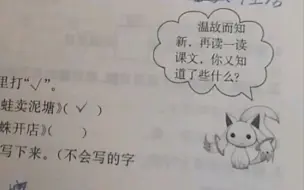 温故而知
新，再读一读
课文，你又知
道了些什么？
里打“√”。
蛙卖泥塘》（ √ ）
蛛开店》（ ）
写下来。（不会写的字